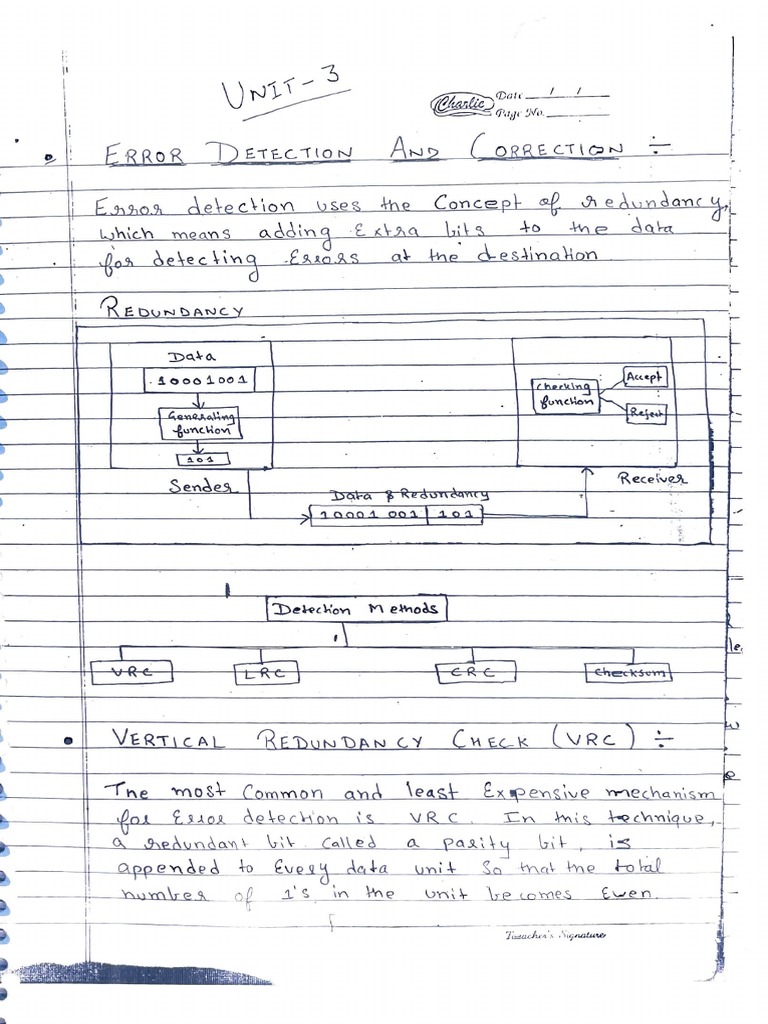 UNIT-3
Charlie Date / /
Page No.
ERROR DETECTION AND CORRECTION ÷
Error detection uses the Concept of redundancy,
which means adding Extra bits to the data
for detecting Errors at the destination
REDUNDANCY
Data
10001001
Generating
function
101
Sender
Checking
function
Accept
Reject
Receiver
Data & Redundancy
10001 001 101
Detection Methods
VRC LRC CRC Checksum
VERTICAL REDUNDANCY CHECK (VRC) ÷
The most Common and least Expensive mechanism
for Error detection is VRC. In this technique,
a redundant bit called a parity bit, is
appended to Every data unit So that the total
number of 1's in the unit becomes Even.
Teacher's Signature